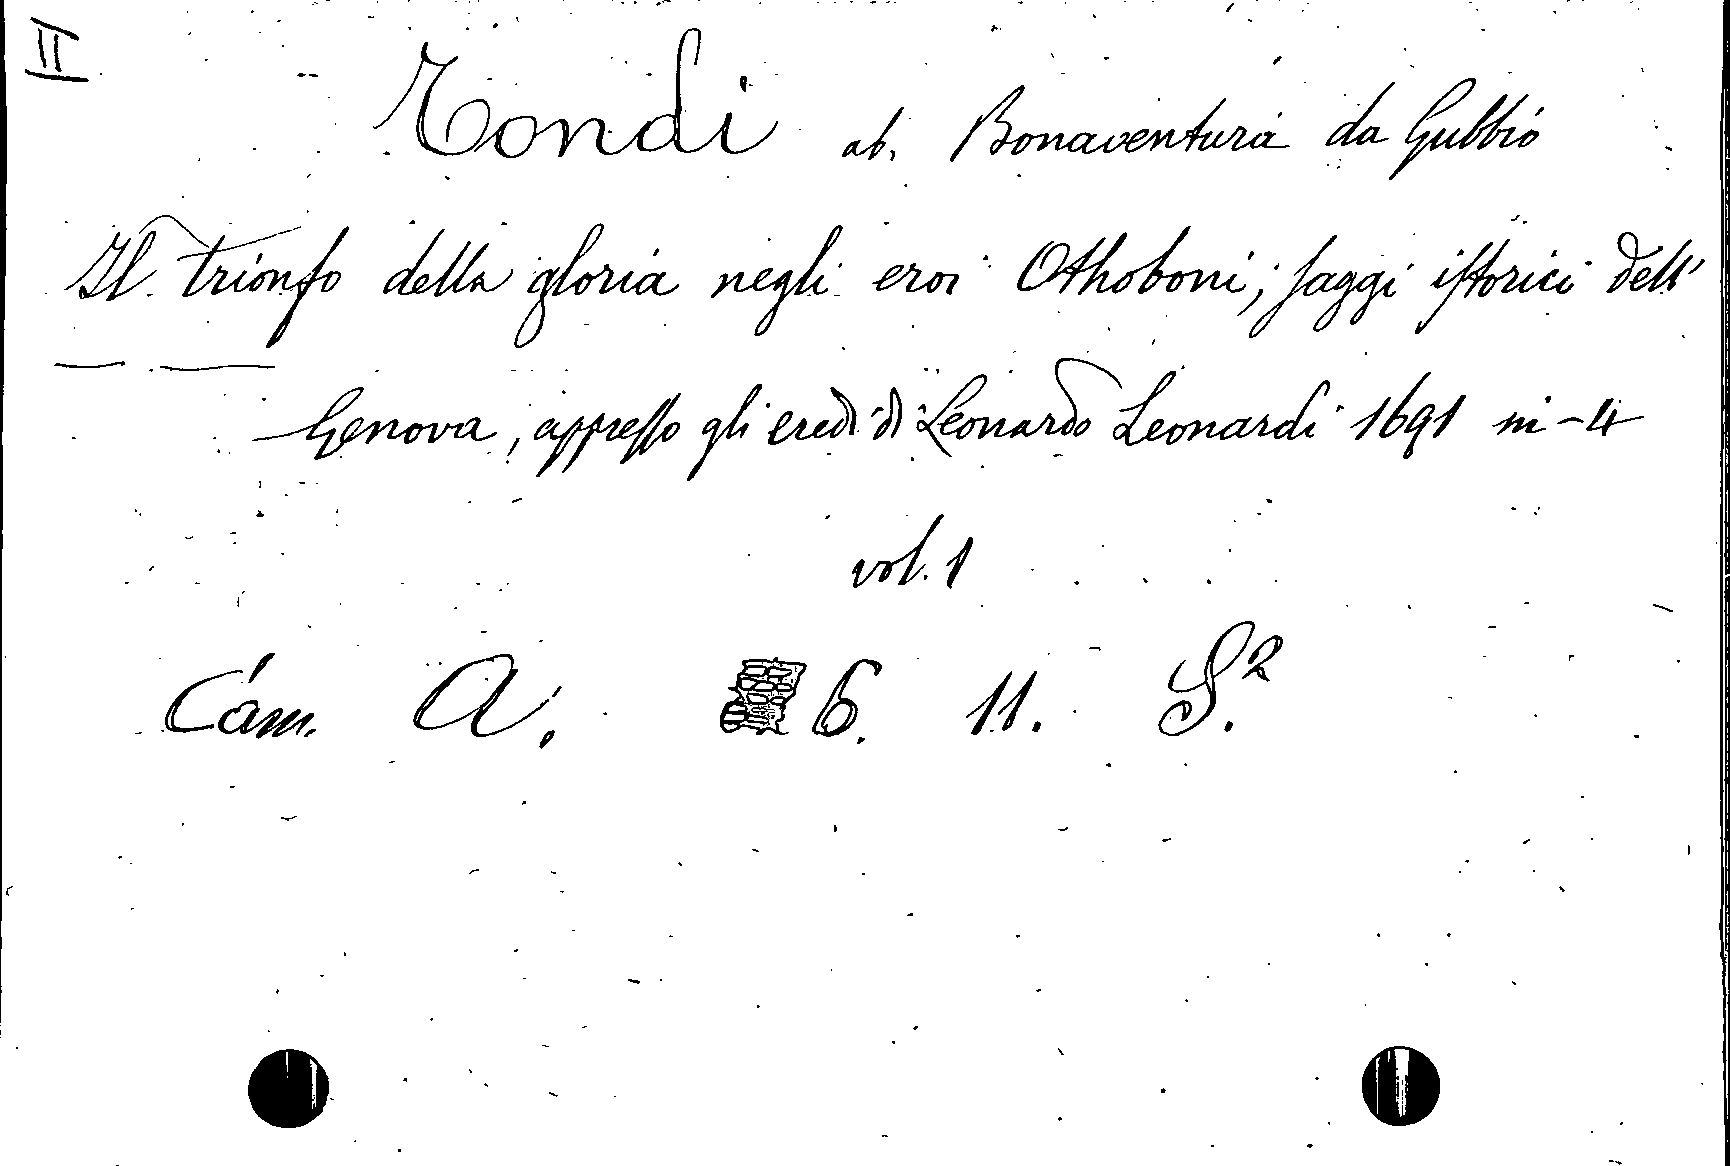 II
Tondi ab. Bonaventura da Gubbio
Il trionfo della gloria negli eroi Othoboni; saggi istorici dell'
— — Genova, appresso gli eredi di Leonardo Leonardi 1691 in-4
vol. 1
Cam. A. 6. 11. S.²